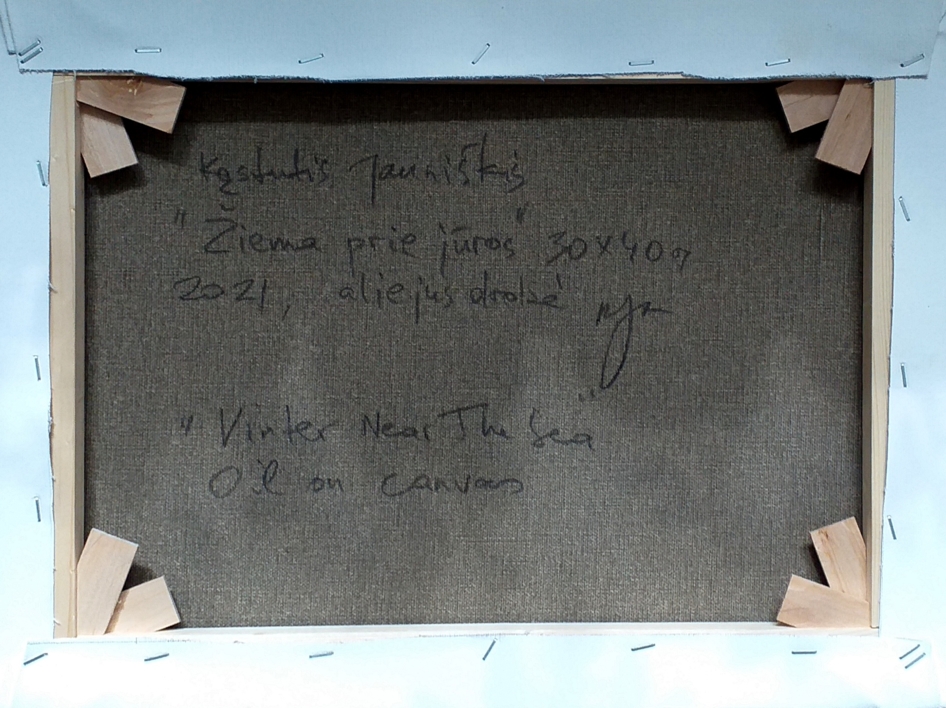 Kęstutis Jauniškis
"Žiema prie jūros" 30x40
2021, aliejus drobė
"Vinter Near The Sea"
Oil on canvas